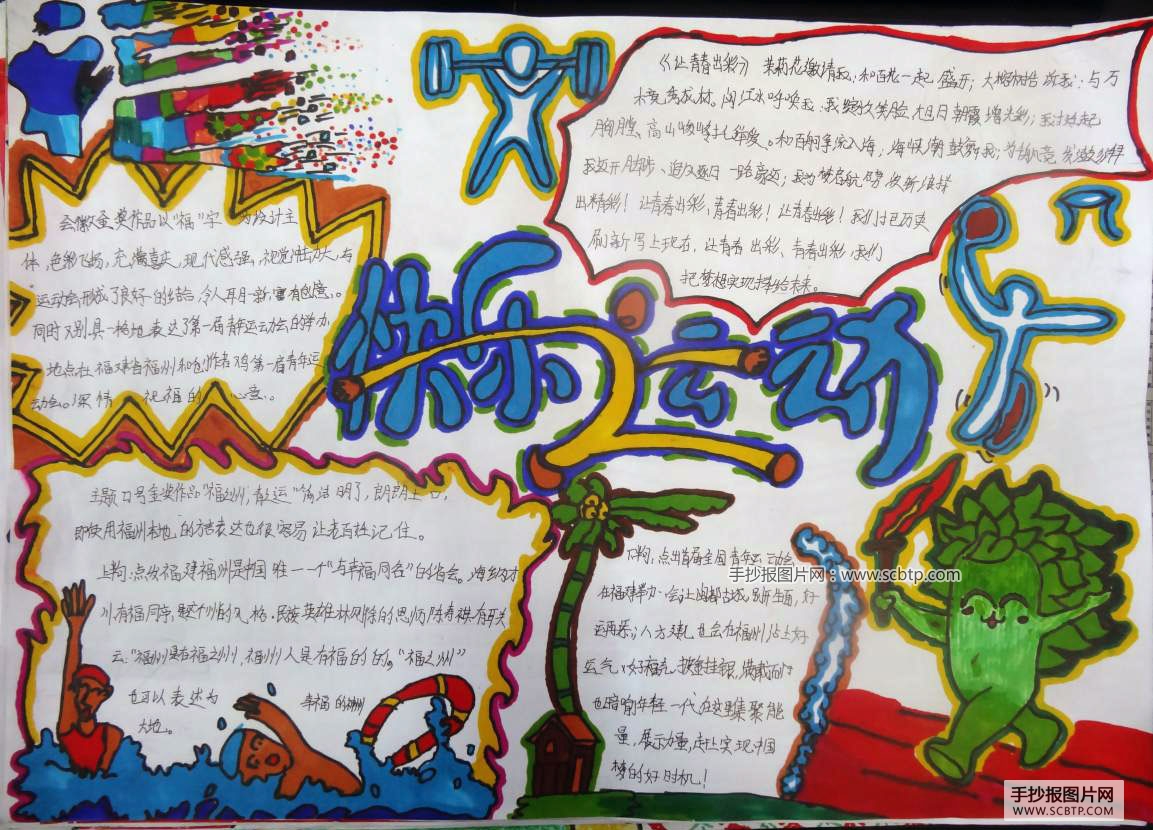 快乐运动
《让青春出彩》 茉莉花邀请我：和百花一起 盛开；大榕树告诉我：与万
木竞秀成材。闽江水呼唤我：我绽放笑脸 为旭日朝霞增光彩；我计挺起
胸膛、
我迈开脚步、追风逐日 一路豪迈；
出精彩！让青春出彩，青春出彩！让青春出彩！我们过已历史
刷新 写上现在，让青春 出彩，青春出彩，我们
把梦想实现 未来。
会徽金奖作品以“福”字 为设计主
体，色彩飞扬，充满喜庆，现代感强，视觉冲击力大，与
运动会形成了良好的结合，令人耳目一新，富有创意。
同时又别具一格地表达了第一届青年运动会的举办
地点在福建省福州和创作者对第一届青年运
动会。深情 祝福的 心意。
主题口号金奖作品“福之州，青之运”简洁明了，朗朗上口，
即使用福州本地 的方言表达也很容易 让老百姓记住。
上驹：点出福建福州是中国 唯一一个“与幸福同名”的省会。
州有福同字， 民族英雄林则徐的恩师陈寿祺有
云：“福州是有福之州，福州人是有福的 的。”“福之州”
也可以表达为 幸福的
大地。
下驹：点出首届全国青年运动会
在福建举办 会让闽都古城，别开生面，好
运再来；八方健儿 也会在福州沾上好
运气、好福气，披金挂银，满载而归
也寓喻年轻一代在这里集聚能
量，展示力量，走上实现中国
梦的好时机！
手抄报图片网：www.scbtp.com
手抄报图片网
WWW.SCBTP.COM